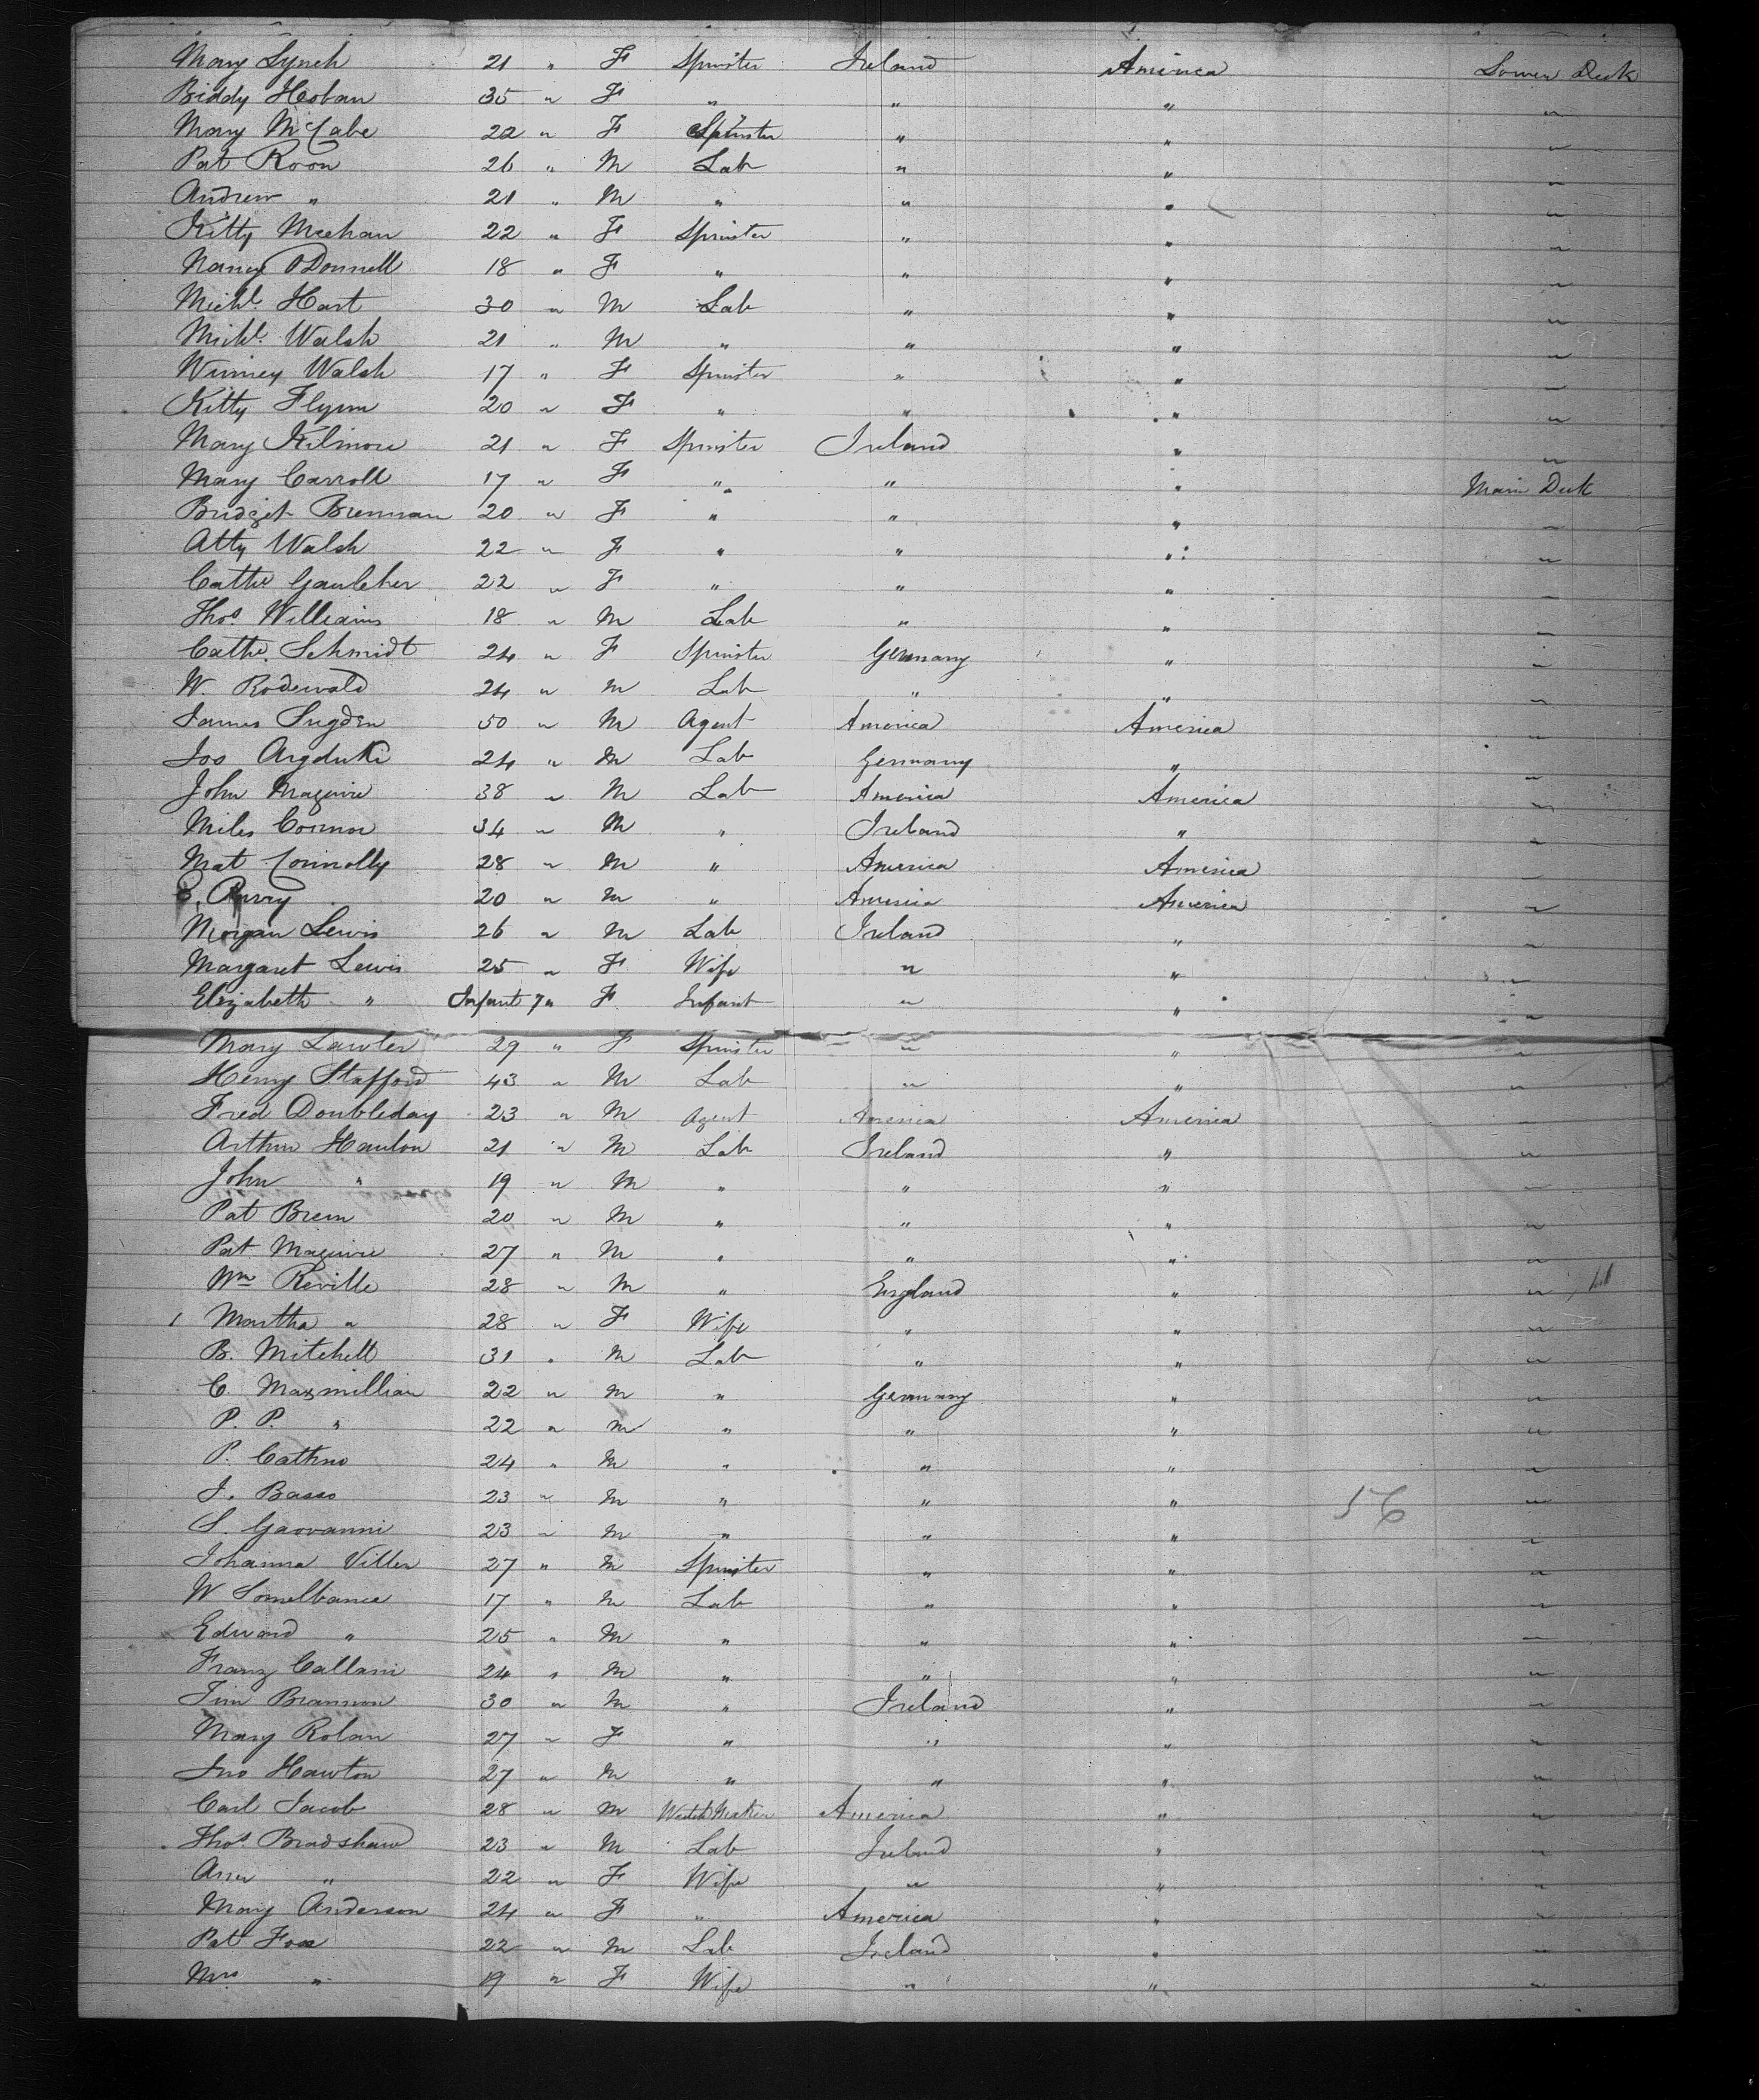 Mary Lynch 21 " F Spinster Ireland America Lower Deck
Biddy Hoban 35 " F " " " "
Mary McCabe 22 " F Spinster " " "
Pat Roon 26 " M Lab " " "
Andrew " 21 " M " " " "
Kitty Meehan 22 " F Spinster " " "
Nancy O'Donnell 18 " F " " " "
Michl. Hart 30 " M Lab " " "
Michl. Walsh 21 " M " " " "
Winney Walsh 17 " F Spinster " " "
Kitty Flynn 20 " F " " " "
Mary Kilmore 21 " F Spinster Ireland " "
Mary Carroll 17 " F " " " Main Deck
Bridget Brennan 20 " F " " " "
Atty Walsh 22 " F " " " "
Cathe Gaulcher 22 " F " " " "
Thos Williams 18 " M Lab " " "
Cathe. Schmidt 24 " F Spinster Germany " "
W. Rodewald 24 " M Lab " " "
James Sugden 50 " M Agent America America "
Jos 24 " M Lab Germany " "
John Maguire 38 " M Lab America America "
Miles Connor 34 " M " Ireland " "
Mat Connolly 28 " M " America America "
Parry 20 " M " America America "
Morgan Lewis 26 " M Lab Ireland " "
Margaret Lewis 25 " F Wife " " "
Elizabeth " Infant 7 " F Infant " " "
Mary Lawler 29 " F Spinster " " "
Henry Stafford 43 " M Lab " " "
Fred Doubleday 23 " M Agent America America "
Arthur Hanlon 21 " M Lab Ireland " "
John " 19 " M " " " "
Pat Bren 20 " M " " " "
Pat Maguire 27 " M " " " "
Wm Reville 28 " M " England " "
1 Martha " 28 " F Wife " " "
B. Mitchell 31 " M Lab " " "
C. Maxmillian 22 " M " Germany " "
P. P. " 22 " M " " " "
P. Cathno 24 " M " " " "
J. Basso 23 " M " " " " 56
S. Gaovanni 23 " M " " " "
Johanna Viller 27 " M Spinster " " "
W Somelbanca 17 " M Lab " " "
Edward " 25 " M " " " "
Franz Callani 24 " M " " " "
Tim Brannon 30 " M " Ireland " "
Mary Rolan 27 " F " " " "
Jno Hawton 27 " M " " " "
Carl Jacob 28 " M Watch Maker America " "
Thos Bradshaw 23 " M Lab Ireland " "
Ann " 22 " F Wife " " "
Mary Anderson 24 " F " America " "
Pat Fox 22 " M Lab Ireland " "
Mrs " 19 " F Wife " " "